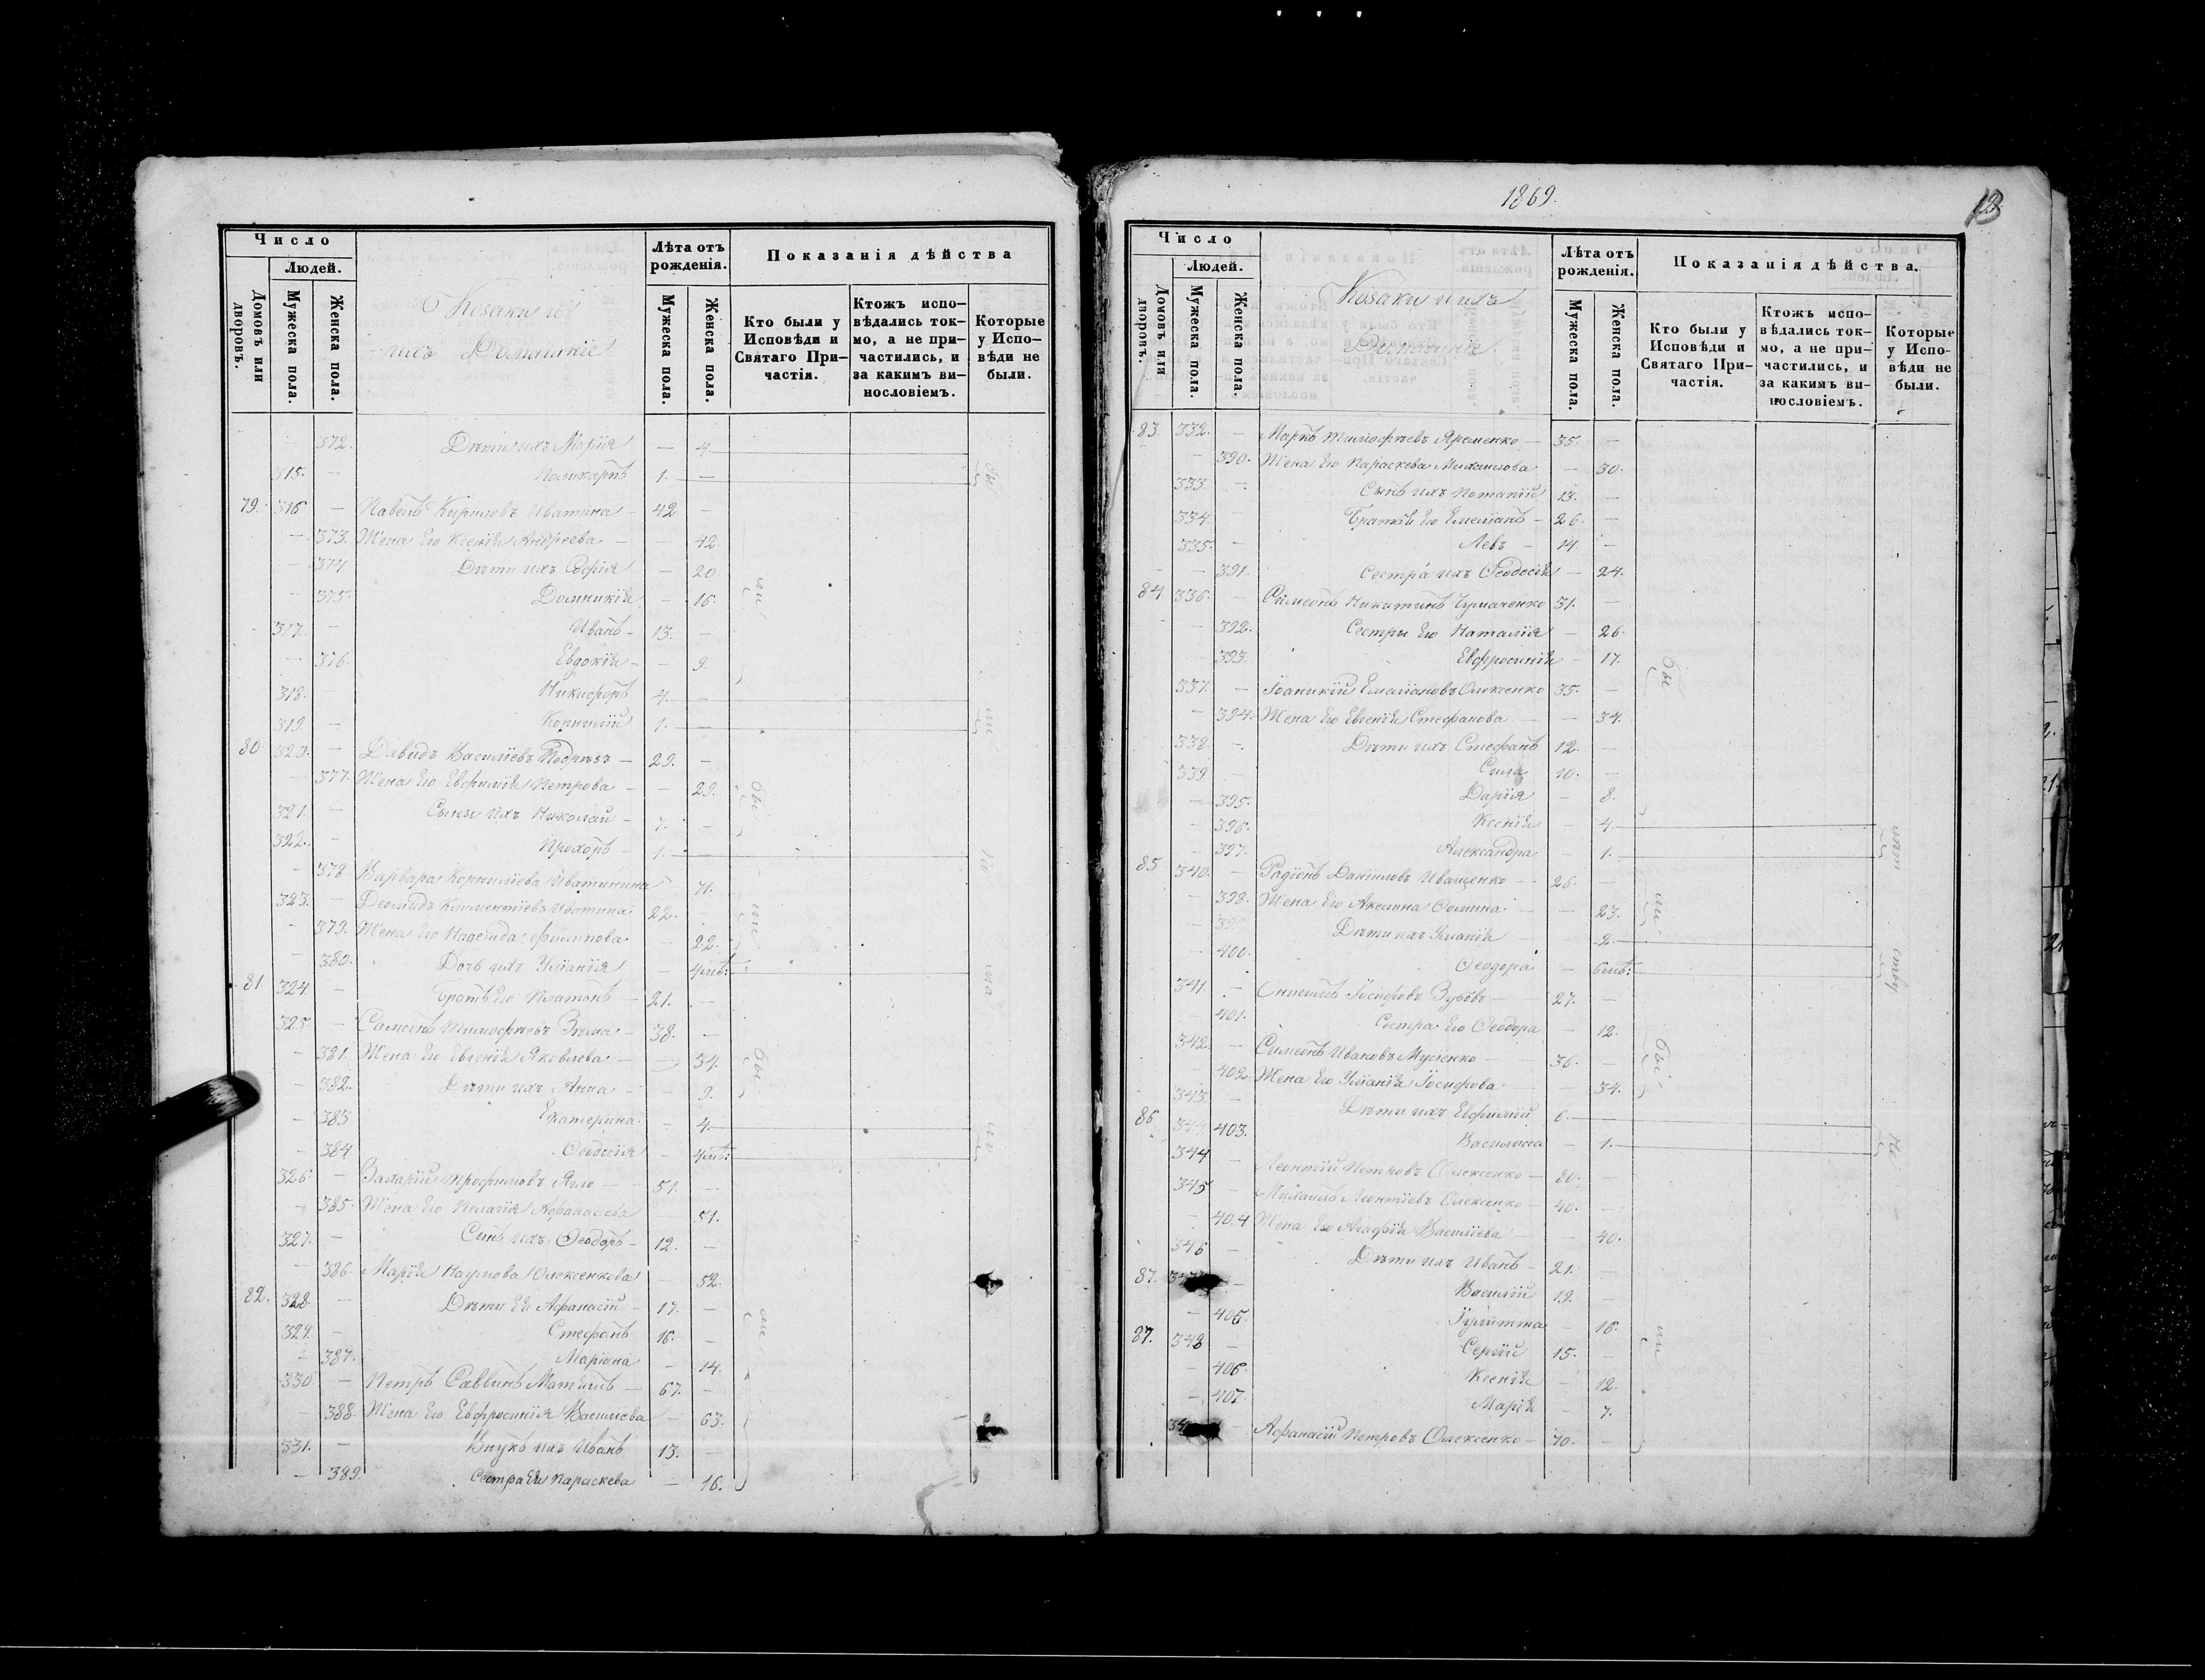 Число
Людей.
Домовъ или дворовъ.
Мужеска пола.
Женска пола.
Козаки и
ихъ Домашніе
Лѣта отъ рожденія.
Мужеска пола.
Женска пола.
Показанія дѣйства
Кто были у Исповѣди и Святаго Причастія.
Ктожъ исповѣдались токмо, а не причастились, и за какимъ винословіемъ.
Которые у Исповѣди не были.
372. Дѣти ихъ Марія — 4.
315. — Поликарпъ 1. —
79. 316 — Павелъ Кириловъ Иватина — 42 —
— 373. Жена Его Ксенія Андреева — — 42.
— 374 Дѣти ихъ Софія — 20.
— 375. Домникія — 16.
317. — Иванъ — 13. —
— 376. Евдокія — — 9.
318. — Никифоръ 4. —
319 — Корнилій 1. —
80. 320. — Давидъ Василіевъ Подрѣзъ — 29. —
— 377. Жена Его Евфимія Петрова — — 29.
321 — Сыны ихъ Николай — 7. —
322. — Прохоръ — 1. —
— 378 Варвара Корниліева Иватинина 71.
323. — Діомидъ Климентіевъ Иватина 22. —
— 379. Жена Его Надежда Филипова 22.
— 380. Дочь ихъ Уліанія — 4мѣ:
81 324 — Братъ Его Платонъ — 21. —
325. — Самсонъ Тимофѣевъ Зѣма — 38. —
— 381. Жена Его Евгенія Яковлева — — 34.
— 382. Дѣти ихъ Анна — — 9.
— 383 Екатерина — 4.
— 384 Ѳеодосія — 4мѣ:
326. — Захарій Трофимовъ Ягло — 51. —
— 385. Жена Его Пелагія Афанасіева 51.
327. — Сынъ ихъ Ѳеодоръ — 12. —
— 386. Марія Наумова Олексенкова — 52.
82. 328. — Дѣти Ея Афанасій — 17. —
329. — Стефанъ 16. —
— 387. Маріана — 14.
330 — Петръ Саввинъ — 67. —
— 388. Жена Его Евфросинія Василіева — 63.
331. — Внукъ ихъ Иванъ 13. —
— 389. Сестра Ея Параскева — 16.
бы
ли
не
бы
ли
1869.
Число
Людей.
Домовъ или дворовъ.
Мужеска пола.
Женска пола.
Козаки и ихъ
Домашніе.
Лѣта отъ рожденія.
Мужеска пола.
Женска пола.
Показанія дѣйства.
Кто были у Исповѣди и Святаго Причастія.
Ктожъ исповѣдались токмо, а не причастились, и за какимъ винословіемъ.
Которые у Исповѣди не были.
83. 332. — Маркъ Тимофѣевъ Яременко — 35. —
— 390. Жена Его Параскева Михаилова — 30.
333. — Сынъ ихъ Потапій 13. —
334. — Братья Его Емеліанъ — 26. —
335. — Левъ — 14. —
— 391. Сестра ихъ Ѳеодосія — 24.
84. 336. — Симеонъ Никитинъ Чумаченко 31. —
— 392. Сестры Его Наталія — 26.
— 393. Евфросинія — 17.
337. — Іоаникій Емеліановъ Олексенко 35. —
— 394. Жена Его Евгенія Стефанова — 34.
338. — Дѣти ихъ Стефанъ 12. —
339 — Сила 10. —
— 395. Дарія — 8.
— 396. Ксенія — 4.
— 397. Александра — 1.
85 340. — Родіонъ Даніиловъ Иващенко — 26. —
— 398. Жена Его Акилина — — 23.
Дѣти ихъ Уліанія 2.
— 400. Ѳеодора — 6мѣ:
341 — Іосифовъ Зубовъ — 27. —
401. Сестра Его Ѳеодора — 12.
342. — Симеонъ Ивановъ Мусіенко — 36. —
402. Жена Его Уліанія Іосифова — 34.
343. — Дѣти ихъ Евфимій 6.
86 403. Василиса — 1.
344 — Леонтій Петровъ Олексенко — 80. —
345 — Михаилъ Леонтіевъ Олексенко — 40. —
— 404 Жена Его Агафія Василіева — 40.
346 — Дѣти ихъ Иванъ — 21. —
87. — Василій 19. —
— 405. Іулитта — 16.
87. 348 — Сергій 15. —
— 406. Ксенія — 12.
— 407. Марія — 7.
— Афанасій Петровъ Олексенко — 70. —
бы
ли
бы
ли